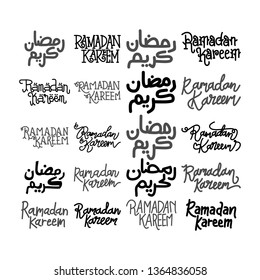 رمضان
كريم
RAMADAN
KAREEM
رمضان
كريم
Ramadan
Kareem
Ramadan
Kareem
RAMADAN
KAREEM
رمضان
كريم
Ramadan
Kareem
RAMADAN
KAREEM
Ramadan
Kareem
رمضان
كريم
Ramadan
Kareem
رمضان
كريم
Ramadan
Kareem
رمضان
كريم
Ramadan
Kareem
Ramadan
Kareem
Ramadan
Kareem
RAMADAN
KAREEM
Ramadan
Kareem
shutterstock.com · 1364836058